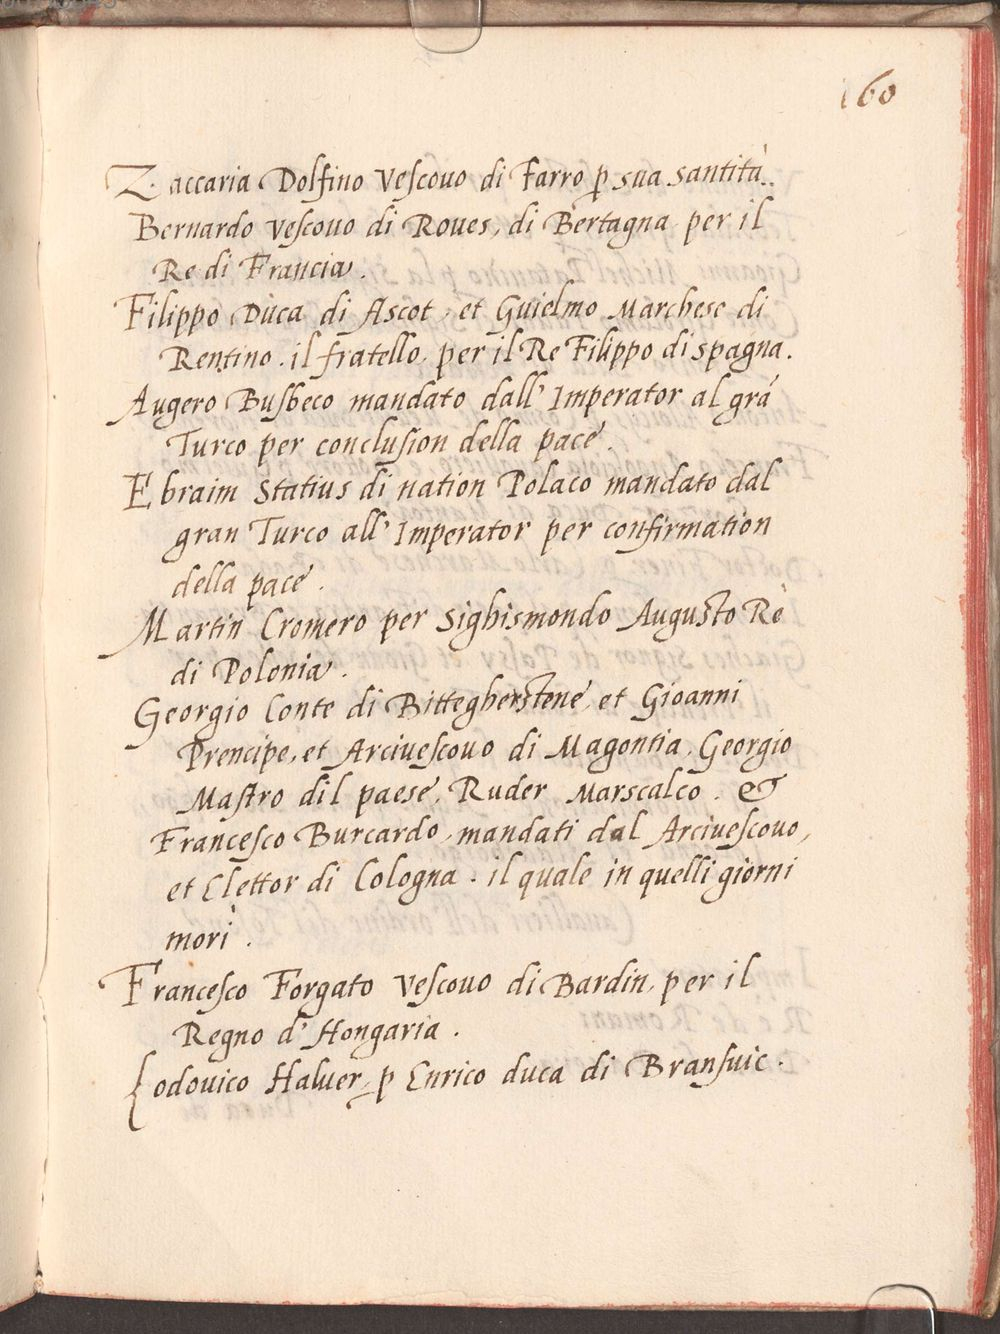 160
Zaccaria Dolfino Vescouo di Farro p sua santità.
Bernardo vescouo di Roues, di Bertagna per il
Re di Francia.
Filippo Duca di Ascot, et Guielmo Marchese di
Rentino. il fratello, per il Re Filippo di spagna.
Augero Busbeco mandato dall' Imperator al grã
Turco per conclusion della pace.
Ebraim Statius di nation Polaco mandato dal
gran Turco all' Imperator per confirmation
della pace.
Martin Cromero per Sighismondo Augusto Rè
di Polonia.
Georgio Conte di Bittegherstene, et Gioanni
Prencipe, et Arciuescouo di Magontia, Georgio
Mastro dil paese, Ruder Marscalco. &
Francesco Burcardo, mandati dal Arciuescouo,
et Elettor di Cologna. il quale in quelli giorni
morì.
Francesco Forgato Vescouo di Bardin, per il
Regno d' Hongaria.
Lodouico Haluer, p Enrico duca di Bransuic.